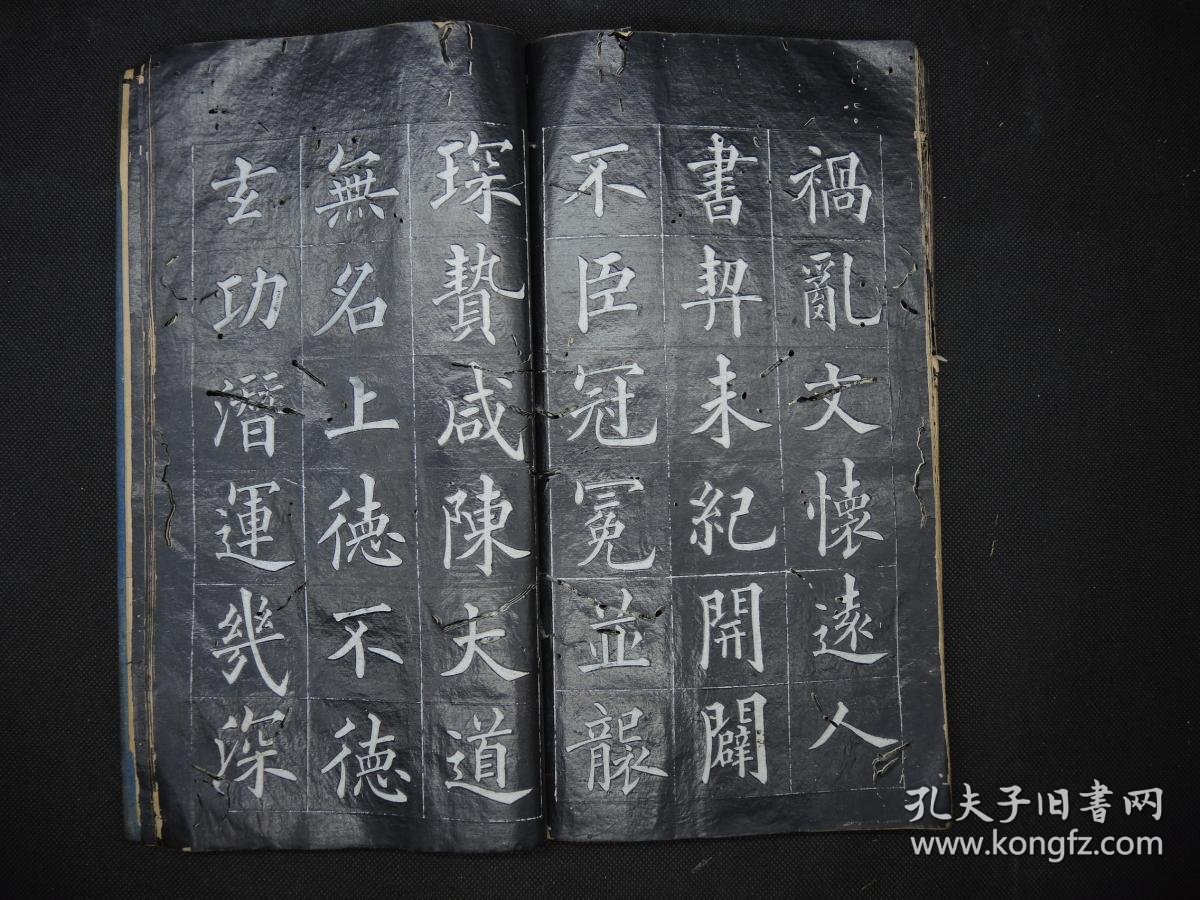 禍亂文懷遠人
書契未紀開闢
不臣冠冕並襲
琛贄咸陳大道
無名上德不德
玄功潛運幾深
孔夫子旧書网
www.kongfz.com